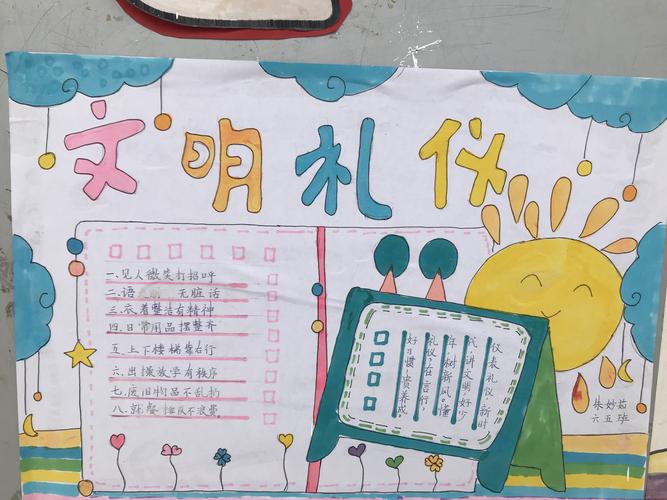 文明礼仪
一.见人微笑打招呼
二.语 无脏话
三.衣着整洁有精神
四.日常用品摆整齐
五.上下楼梯靠右行
六.出操放学有秩序
七.废旧物品不乱扔
八.就餐排队不浪费
仪表礼仪,新时
代讲文明,好少
年树新风。懂
礼仪,在言行,
好习惯,贵养成
朱妙茹
六五班